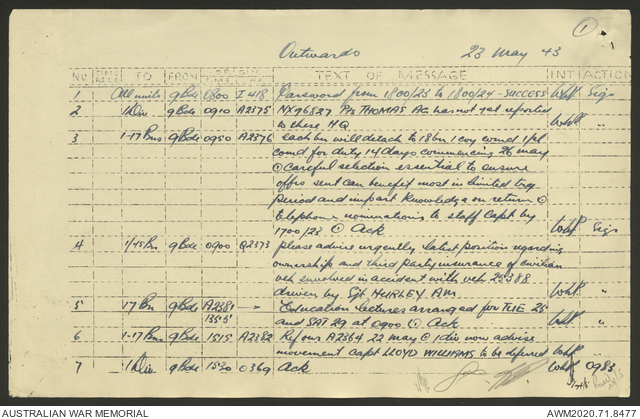 1
Outwards 23 May 43
NO TIME RECD TO FROM ORIG TIME ORIG NO TEXT OF MESSAGE INT ACTION
1 All units 9 Bde 0800 I 418 Password from 1800/23 to 1800/24 - SUCCESS Sigs
2 1 Div 9 Bde 0910 A2375 NX96827 Pte THOMAS AG has not yet reported
to these HQ "
3 1-17 Bns 9 Bde 0950 A2376 Each bn will detach to 18 bn 1 coy comd 1 pl
comd for duty 14 days commencing 26 May
Careful selection essential to ensure
offrs sent can benefit most in limited trg
period and impart knowledge on return
telephone nominations to staff Capt by
1700/23 Ack Sigs
4 1/45 Bn 9 Bde 0900 Q2373 please advise urgently latest position regarding
ownership and third party insurance of civilian
veh involved in accident with veh 25388
driven by Sgt HURLEY AM "
5 17 Bn 9 Bde A2381 Education lectures arranged for TUE 25
1355 and SAT 29 at 0900 Ack "
6 1-17 Bns 9 Bde 1515 A2382 Ref our A2364 22 May 1 div now advise
movement Capt LLOYD WILLIAMS to be deferred "
7 1 Div 9 Bde 1530 O369 Ack 0983
AUSTRALIAN WAR MEMORIAL AWM2020.71.8477